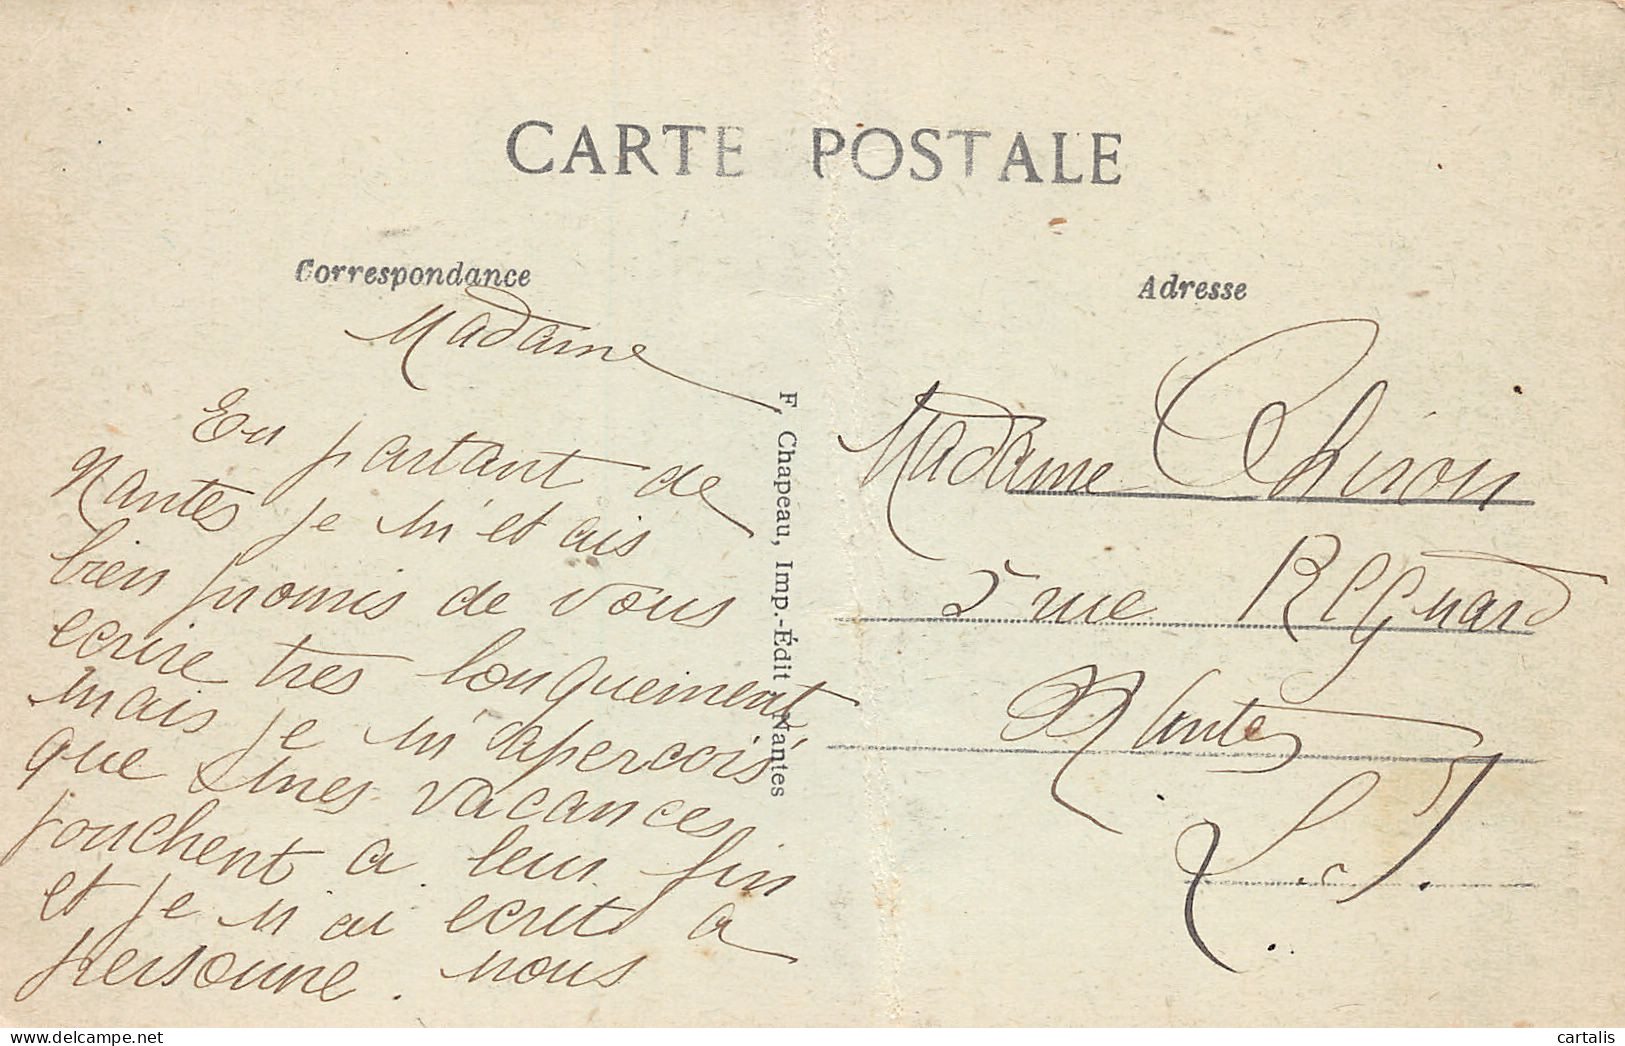 CARTE POSTALE
Correspondance
Madame
En partant de
Nantes je m'etais
bien promis de vous
ecrire tres longuement,
mais je m'apercois
que mes vacances
touchent a leur fin
et je n'ai ecrit a
personne. nous
F. Chapeau, Imp.-Édit., Nantes
Adresse
Madame Chiron
5 rue Regnard
Nantes
L. I.
cartalis